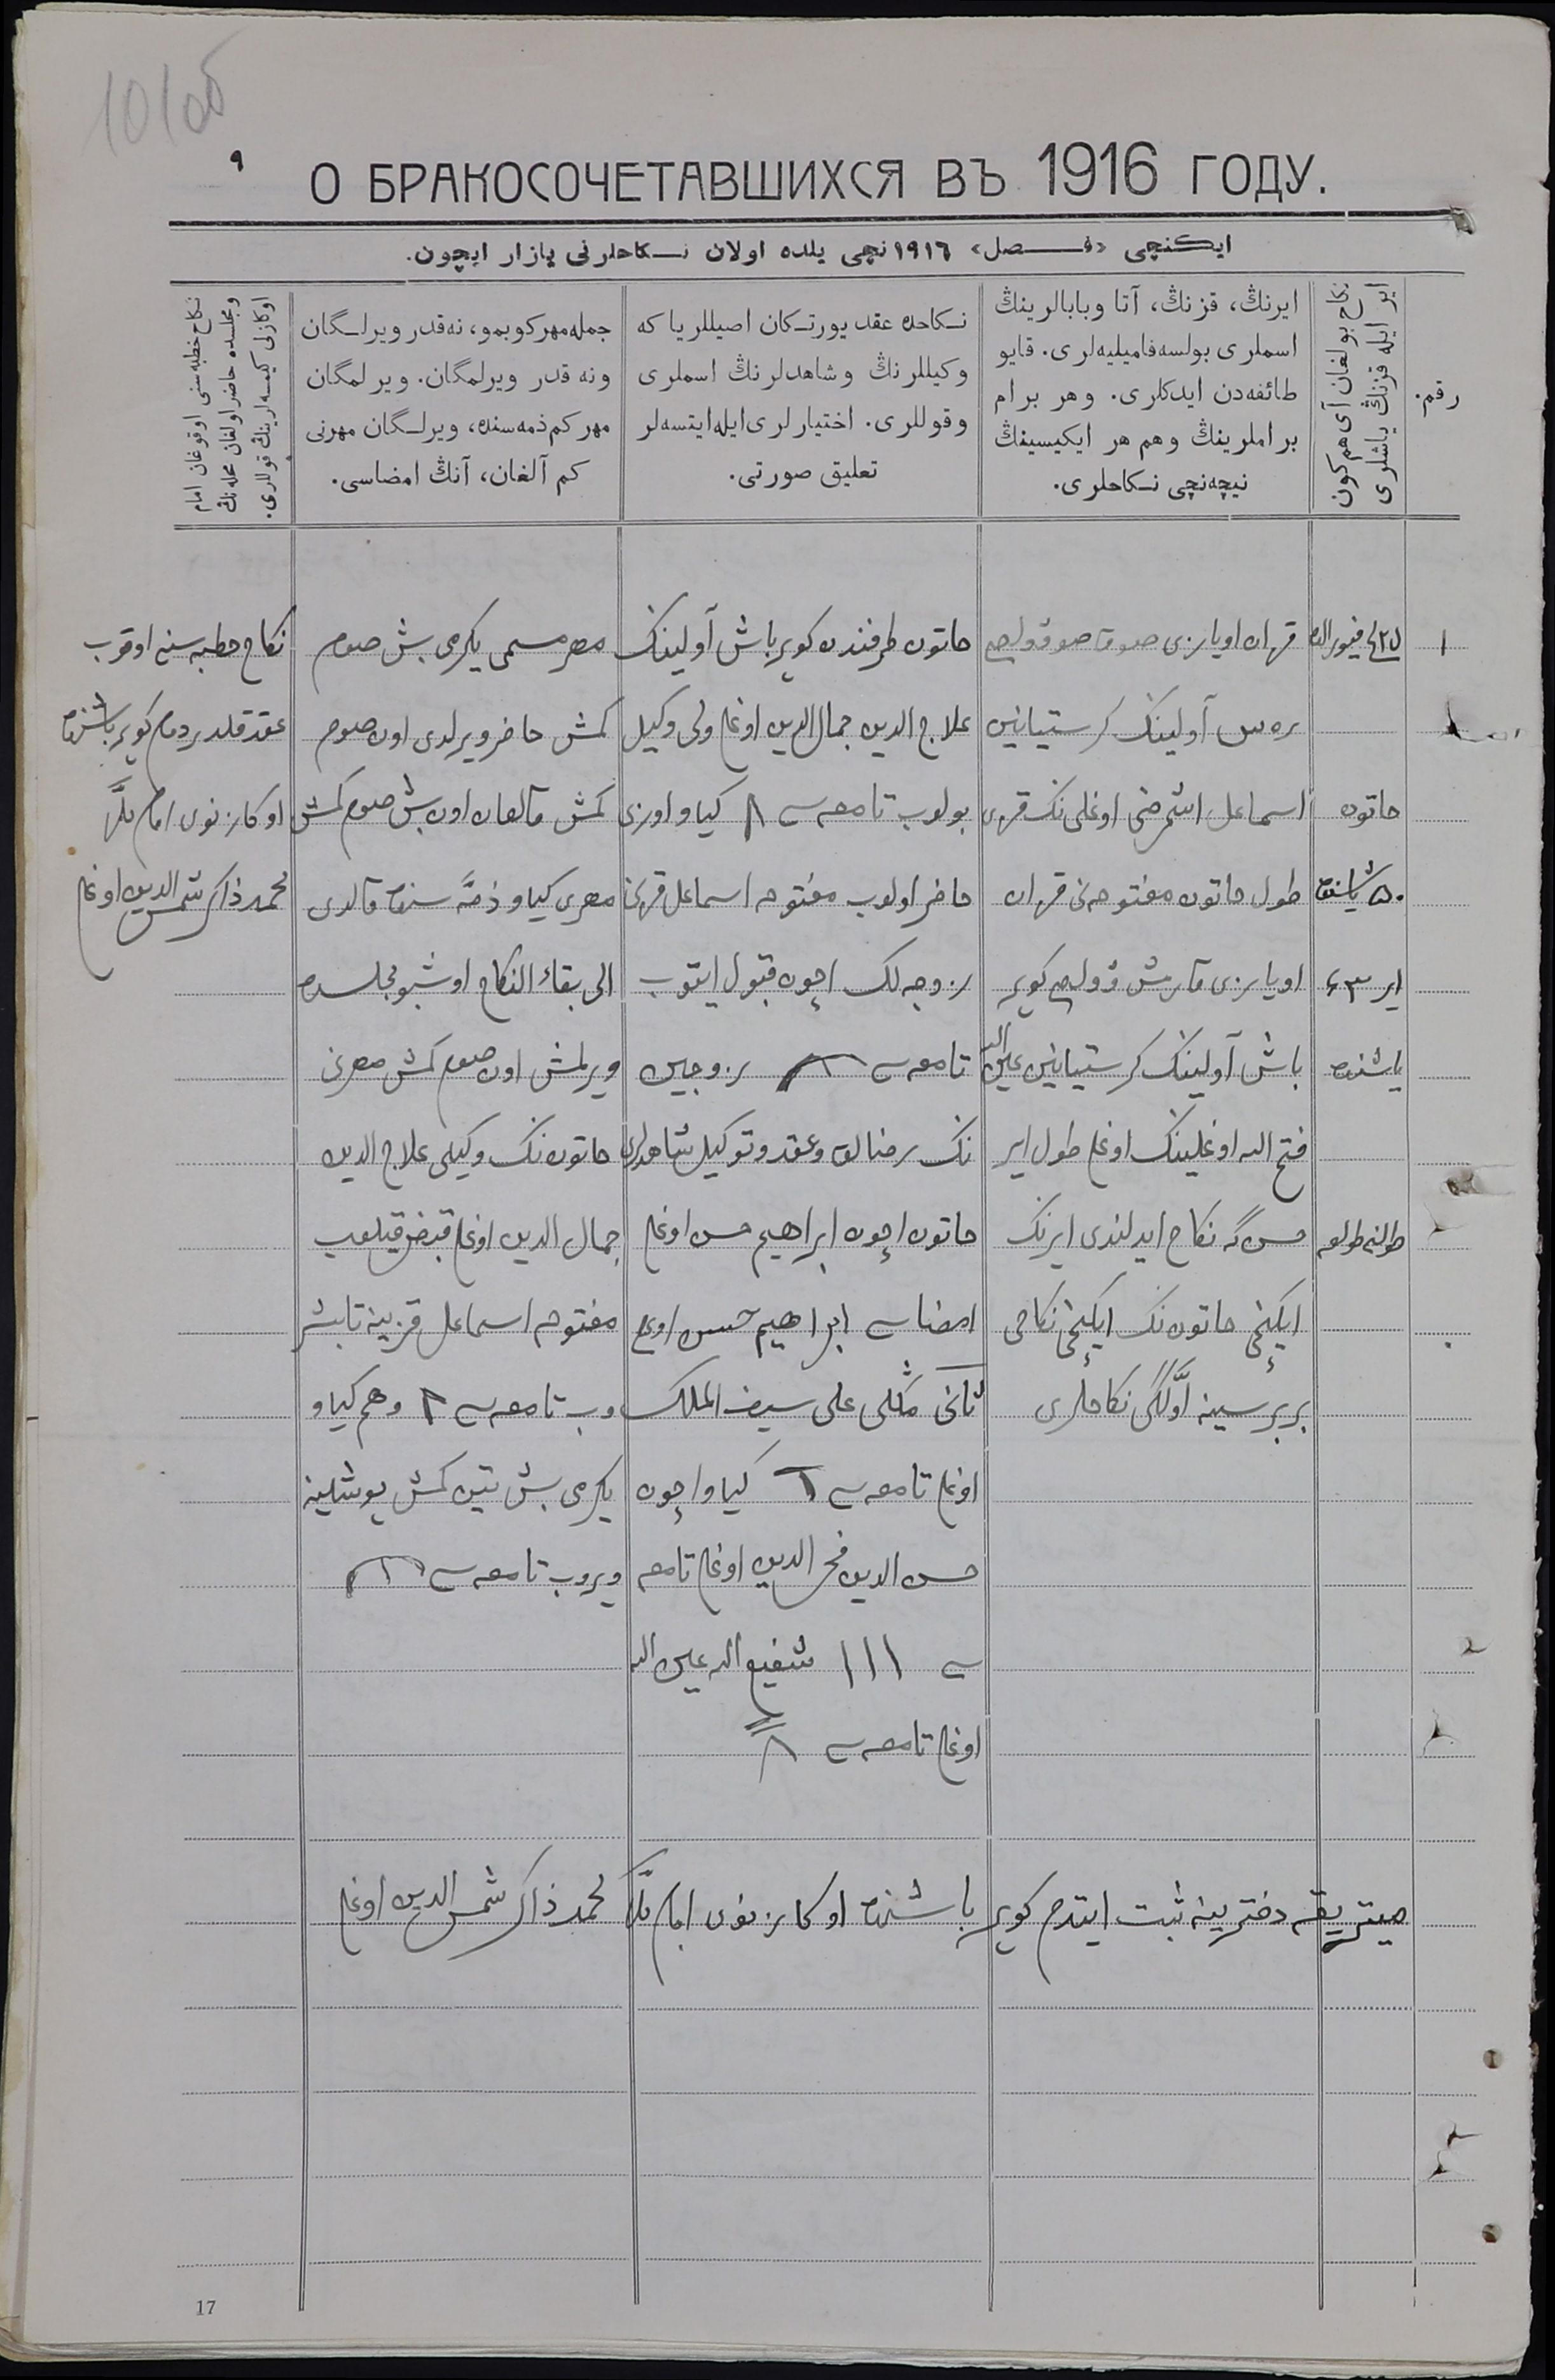 101об
۹
О БРАКОСОЧЕТАВШИХСЯ ВЪ 1916 ГОДУ.
ایکنچی «فصل» ۱۹۱٦ نچی یلده اولان نکاحلرنی یازار ایچون.
رقم.
نکاح بولغان آی هم کون
ایر ایله قزنڭ یاشلری
ایرنڭ، قزنڭ، آتا وبابالرینڭ
اسملری بولسه فامیلیه‌لری. قایو
طائفه‌دن ایدکلری. وهر برام
براملرینڭ وهم هر ایکیسینڭ
نیچه‌نچی نکاحلری.
نکاحده عقد یورتکان اصیللر یا که
وکیللرنڭ وشاهدلرنڭ اسملری
وقوللری. اختیارلری ایله ایتسه‌لر
تعلیق صورتی.
جمله مهر کوبمو، نه قدر ویرلگان
ونه قدر ویرلمگان. ویرلمگان
مهر کم ذمه‌سنده، ویرلگان مهرنی
کم آلغان، آنڭ امضاسی.
نکاح خطبه سنی اوقوغان امام
ومجلسده حاضر اولغان محله نڭ
اوکازلی کیمسه‌لرینڭ قوللری.
۱
۲۵ نچی فیورالده
خاتون
۵۰ یاشنده
ایر ۶۳
یاشنده
اویازی
رەس آولینک کرستیانین
اسماعیل اشمرضی اوغلی نک قزی
طول خاتون مفتوحه نی قزان
اویازی قارمش وولص کویر
باش آولینک کرستیانین عین الله
فتح الله اوغلینک اوغلی طول ایر
حسن گه نکاح ایدلندی ایرنک
ایکنچی خاتون نک ایکنچی نکاحی
بربرسینه اوّلگی نکاحلری
خاتون طرفندن کویرباش آولینک
علاج الدین جمال الدین اوغلی ولی وکیل
بولوب تامغه سی ۸ کیاو اوزی
حاضر اولوب مفتوحه اسماعیل قزینی
زوجه لک اچون قبول ایتوب
تامغه سی زوجین
نک رضالق وعقد وتوکیل شاهدلری
خاتون اچون ابراهیم حسن اوغلی
امضاسی ابراهیم حسن اوغلی
ثانی علی سیف الملک
اوغلی تامغه سی کیاو اچون
حسن الدین فخر الدین اوغلی تامغه
سی ۱۱۱ شفیع الله عین الله
اوغلی تامغه سی
مهر مسمی یکرمی بش صوم
کمش حاضر ویرلدی اون صوم
کمش قالغان اون بش صوم کمش
مهری کیاو ذمّه سنده قالدی
الی بقاء النکاح اوشبو مجلسده
ویرلمش اون صوم کمش مهرنی
خاتون نک وکیلی علاج الدین
جمال الدین اوغلی قبض قیلوب
مفتوحه اسماعیل قزینه تابشر
وب تامغه سی ۸ وهم کیاو
یکرمی بش تین کمش پوشلینه
ویروب تامغه سی
نکاح خطبه سنی اوقوب
عقد قلدردم کویرباشنده
اوکازنوی امام ملّا
محمد ذاکر شمس الدین اوغلی
میتریقه دفترینه ثبت ایتدم کویر باشنده اوکازنوی امام ملّا محمد ذاکر شمس الدین اوغلی
17